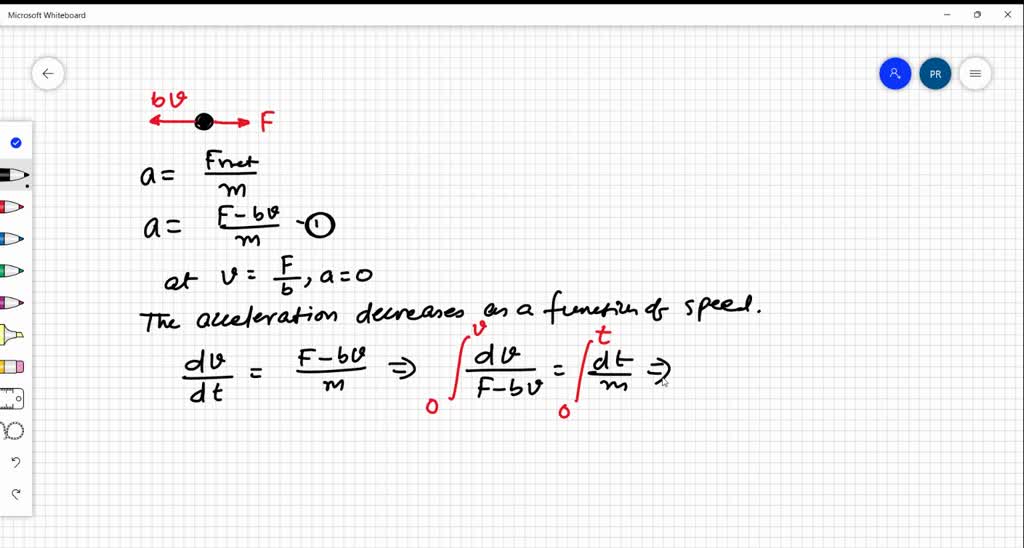 Microsoft Whiteboard
PR
bv
F
a = Fnet/m
a = (F-bv)/m -①
at v = F/b, a=0
The acceleration decreases as a function of speed.
dv/dt = (F-bv)/m ⇒ ∫₀ᵛ dv/(F-bv) = ∫₀ᵗ dt/m ⇒